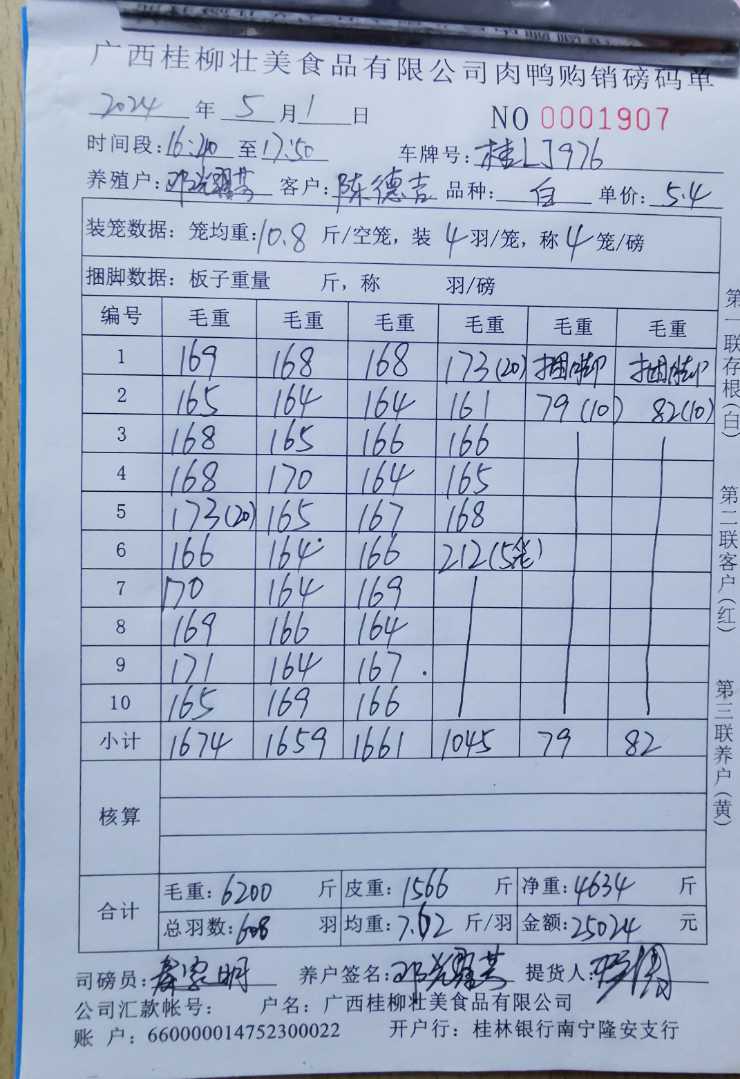 广西桂柳壮美食品有限公司肉鸭购销磅码单
2024 年 5 月 1 日 NO 0001907
时间段:16:20 至 17:50 车牌号:桂LJ976
养殖户: 客户:陈德吉 品种: 白 单价:5.4
装笼数据: 笼均重:10.8 斤/空笼, 装 4 羽/笼, 称 4 笼/磅
捆脚数据: 板子重量 斤, 称 羽/磅
编号 毛重 毛重 毛重 毛重 毛重 毛重
1 169 168 168 173(20) 捆脚 捆脚
2 165 164 164 161 79(10) 82(10)
3 168 165 166 166
4 168 170 164 165
5 173(20) 165 167 168
6 166 164 166 212(5笼)
7 170 164 169
8 169 166 164
9 171 164 167
10 165 169 166
小计 1674 1659 1661 1045 79 82
核算
合计 毛重:6200 斤 皮重:1566 斤 净重:4634 斤
总羽数:608 羽 均重:7.62 斤/羽 金额:25024 元
司磅员:秦家明 养户签名: 提货人:
公司汇款帐号: 户名:广西桂柳壮美食品有限公司
账 户:660000014752300022 开户行:桂林银行南宁隆安支行
第一联存根(白) 第二联客户(红) 第三联养户(黄)